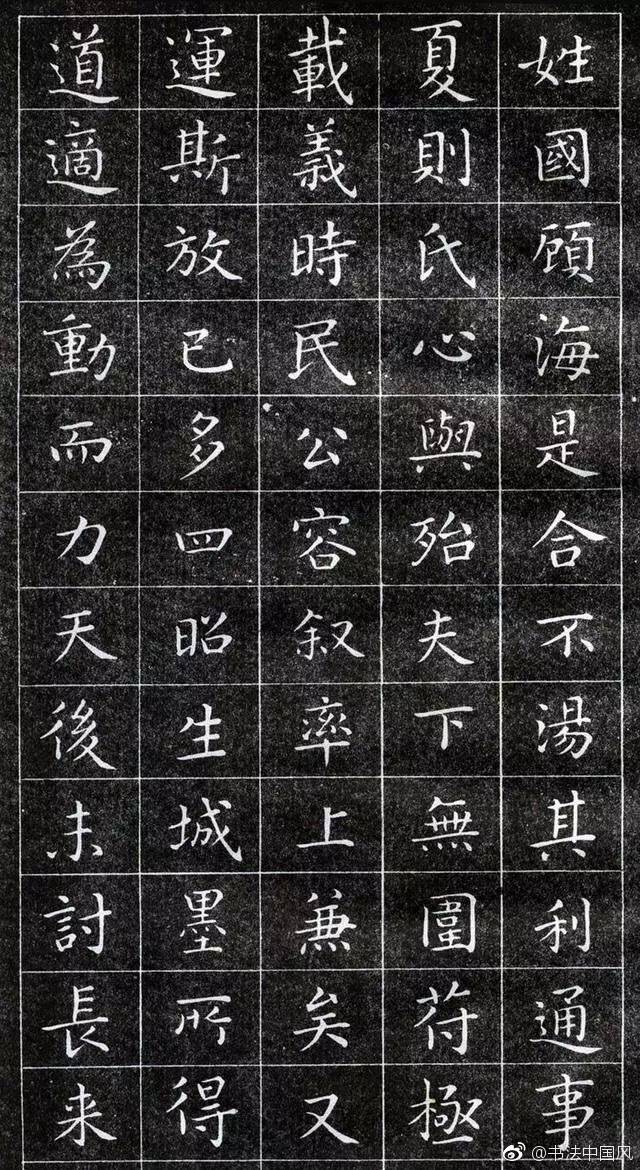 姓國顧海是合不湯其利通事
夏則氏心與殆夫下無圍苻極
載義時民公容叙率上兼矣又
運斯放已多四昭生城墨所得
道適為動而力天後未討長来
@书法中国风